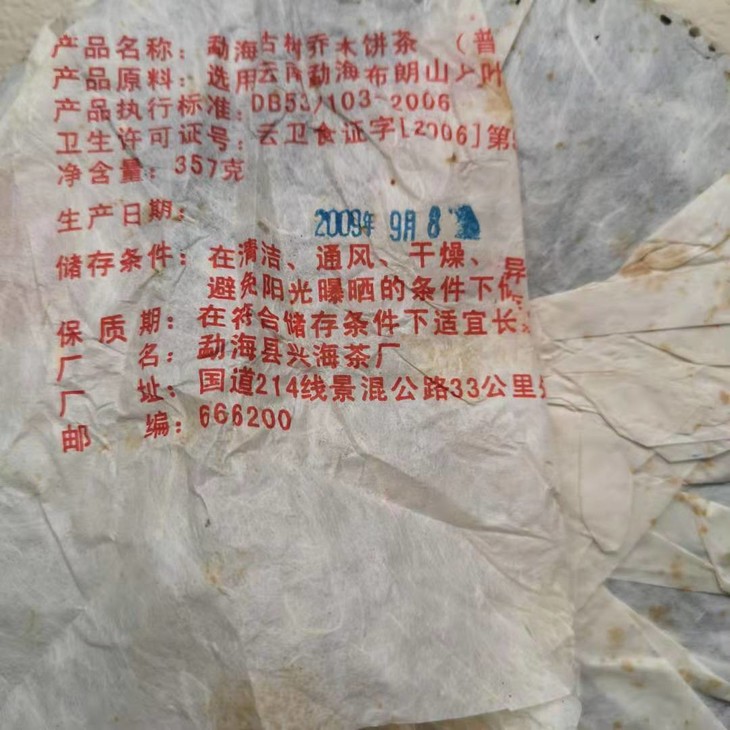 产品名称：勐海古树乔木饼茶（普
产品原料：选用云南勐海布朗山大叶
产品执行标准：DB53/103-2006
卫生许可证号：云卫食证字[2006]第
净含量：357克
生产日期：
2009年 9月 8
储存条件：在清洁、通风、干燥、异
避免阳光曝晒的条件下储
保质期：在符合储存条件下适宜长
厂名：勐海县兴海茶厂
厂址：国道214线景混公路33公里
邮编：666200